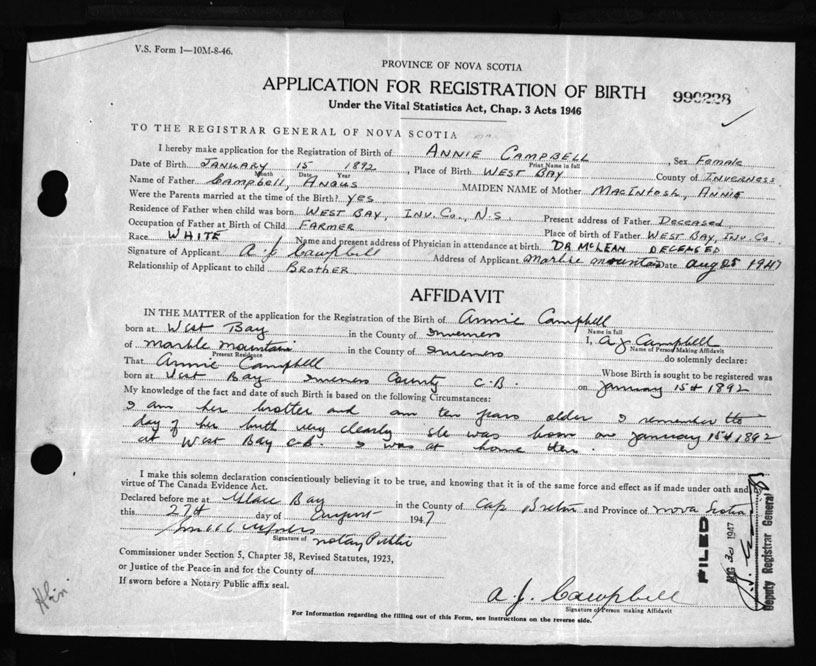 V.S. Form 1—10M-8-46.
PROVINCE OF NOVA SCOTIA
APPLICATION FOR REGISTRATION OF BIRTH
990228
Under the Vital Statistics Act, Chap. 3 Acts 1946
TO THE REGISTRAR GENERAL OF NOVA SCOTIA
I hereby make application for the Registration of Birth of ANNIE CAMPBELL, Sex Female
Print Name in full
Date of Birth JANUARY 15 1892, Place of Birth WEST BAY County of INVERNESS
Month Date Year
Name of Father Campbell, Angus MAIDEN NAME of Mother MacIntosh, Annie
Were the Parents married at the time of the Birth? yes
Residence of Father when child was born WEST BAY, INV. Co., N.S. Present address of Father Deceased
Occupation of Father at Birth of Child FARMER Place of birth of Father WEST BAY, INV. Co.
Race WHITE Name and present address of Physician in attendance at birth DR McLEAN DECEASED
Signature of Applicant A J Campbell Address of Applicant Marble Mountain Date Aug 25 1947
Relationship of Applicant to child BROTHER
AFFIDAVIT
IN THE MATTER of the application for the Registration of the Birth of Annie Campbell
Name in full
born at West Bay in the County of Inverness I, A J Campbell
Name of Person Making Affidavit
of Marble Mountain in the County of Inverness do solemnly declare:
Present Residence
That Annie Campbell Whose Birth is sought to be registered was
born at West Bay Inverness County C.B. on January 15th 1892
My knowledge of the fact and date of such Birth is based on the following Circumstances:
I am her brother and am ten years older I remember the
day of her birth very clearly she was born on January 15th 1892
at West Bay C.B. I was at home then.
I make this solemn declaration conscientiously believing it to be true, and knowing that it is of the same force and effect as if made under oath and
virtue of The Canada Evidence Act.
Declared before me at Glace Bay in the County of Cape Breton and Province of Nova Scotia
this 27th day of August 1947
Signature of Notary Public
Commissioner under Section 5, Chapter 38, Revised Statutes, 1923,
or Justice of the Peace in and for the County of
If sworn before a Notary Public affix seal.
A. J. Campbell
Signature of Person making Affidavit
For Information regarding the filling out of this Form, see instructions on the reverse side.
FILED
AUG 30 1947
Deputy Registrar General